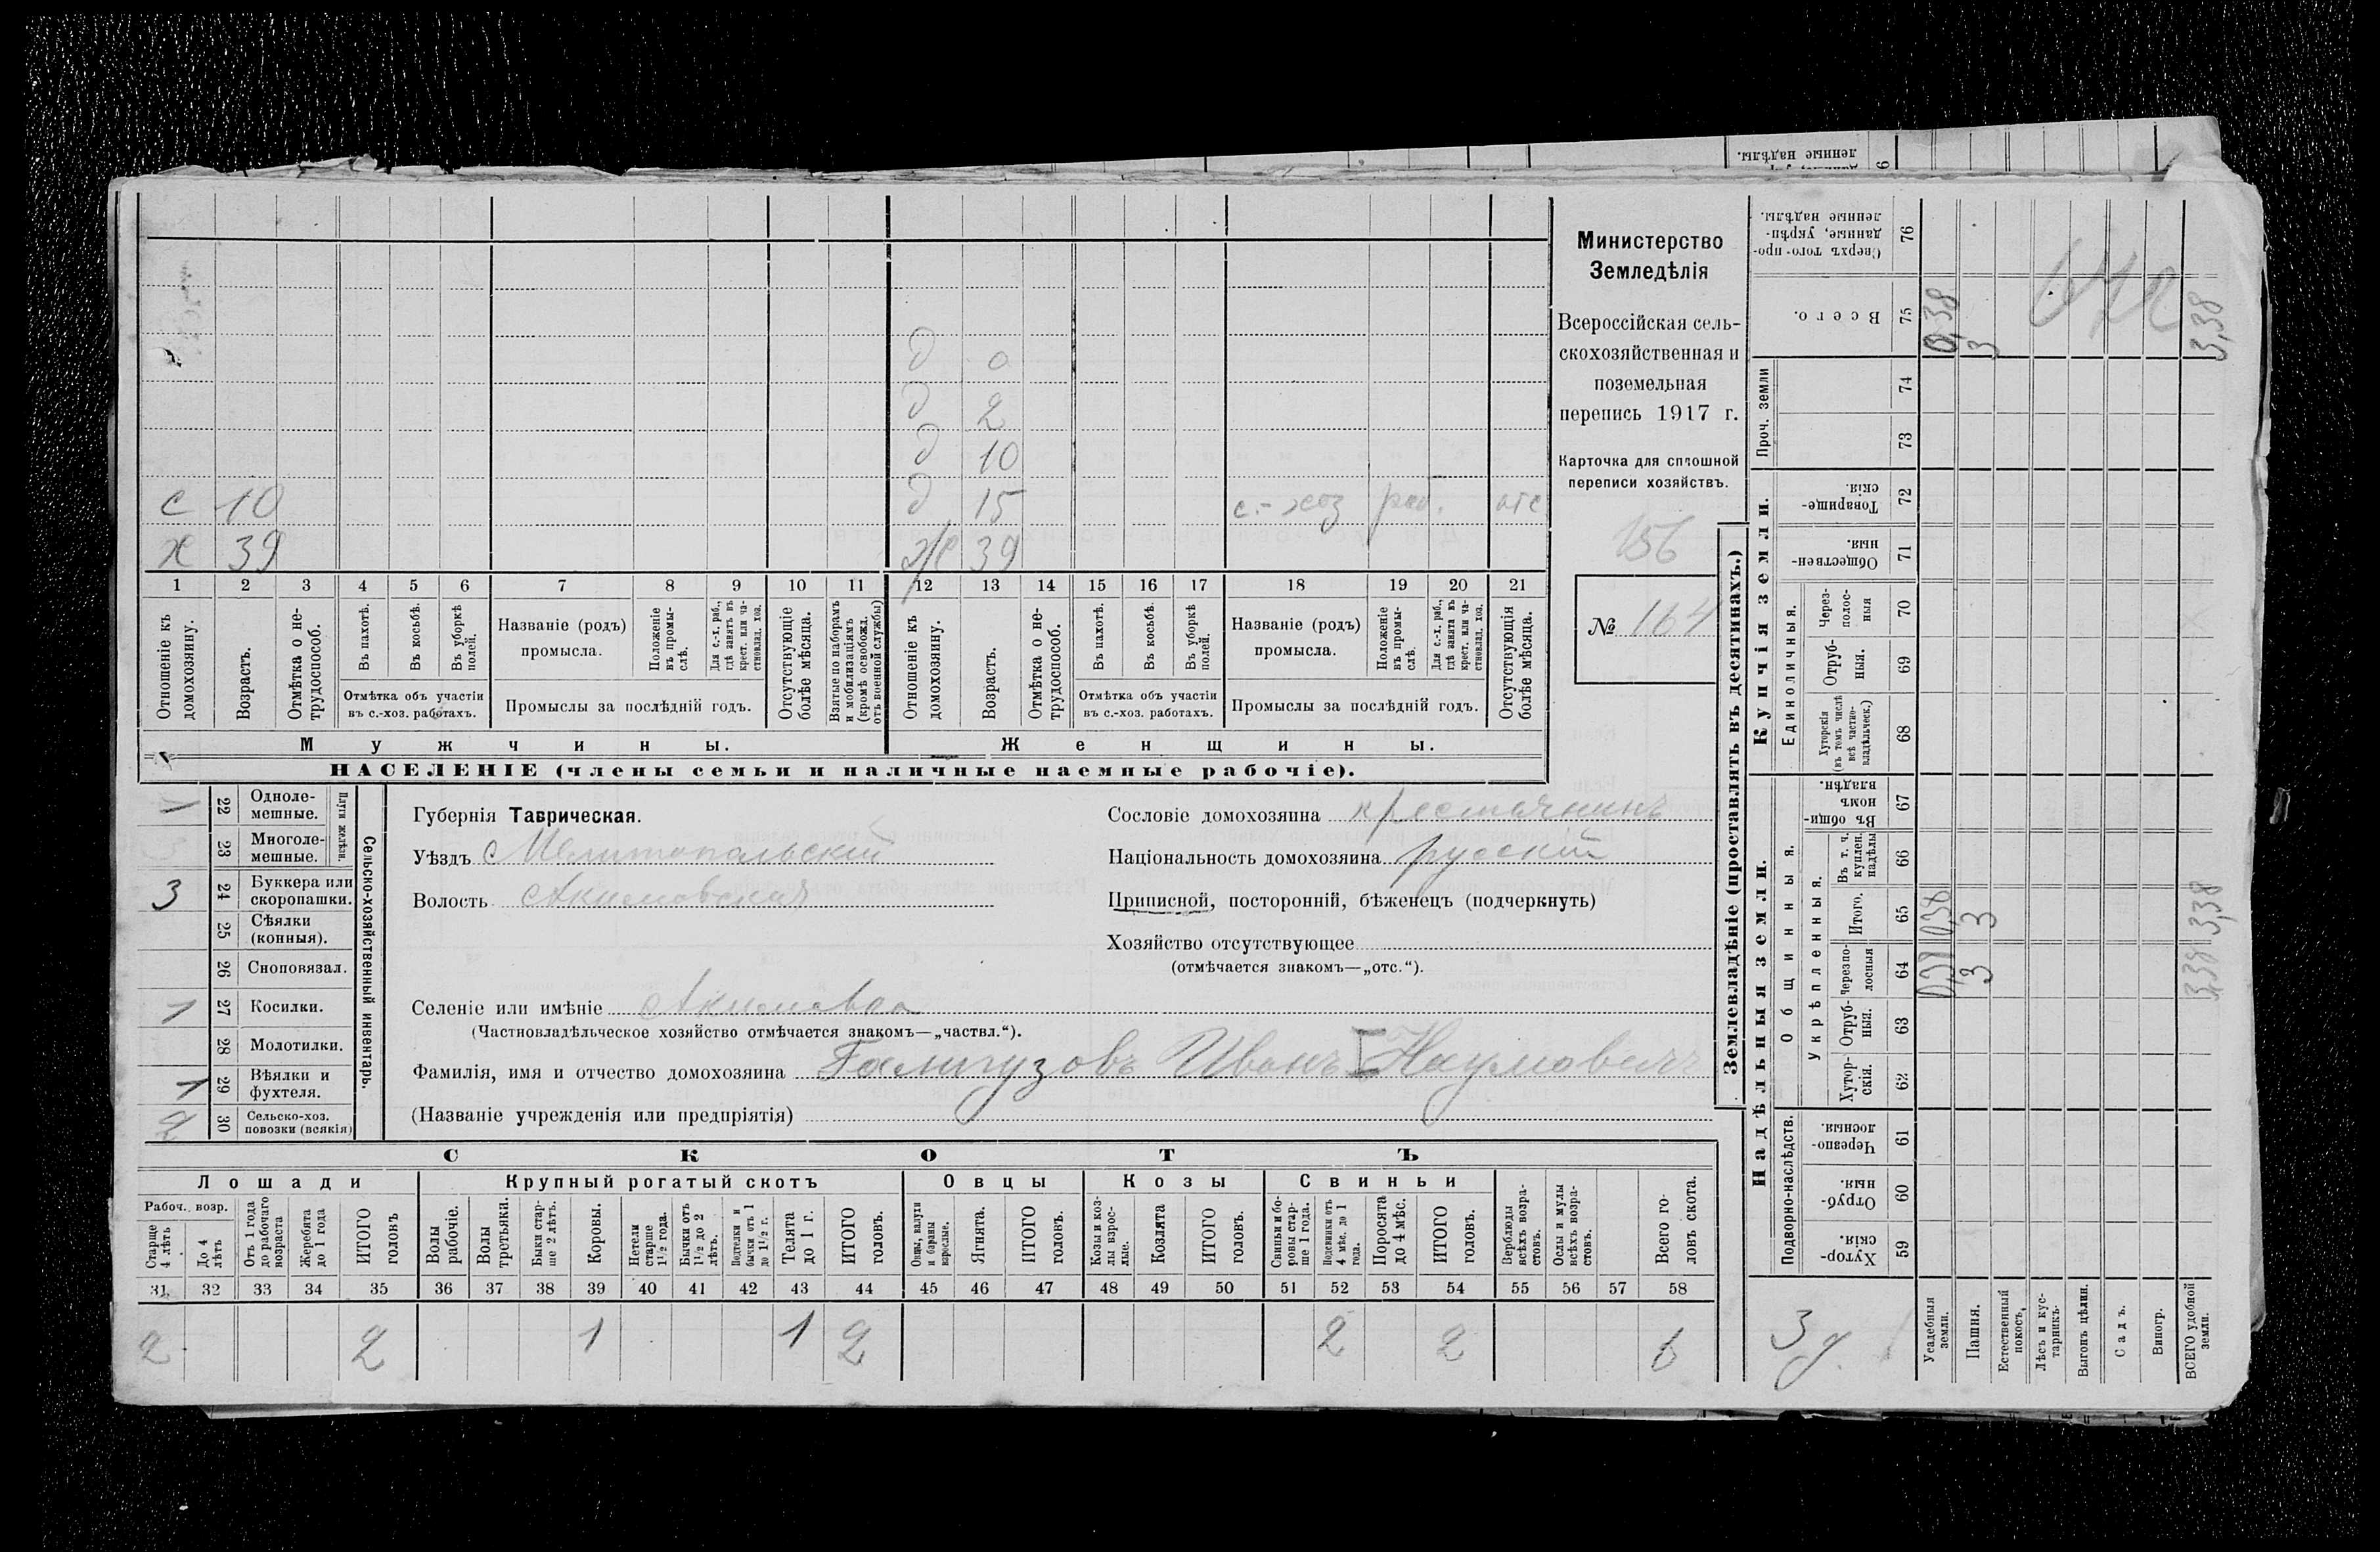 ленные надѣлы.
6
д 0
д 2
д 10
с 10 д 15 с.-хоз раб. отс
х 39 ж 39
1 2 3 4 5 6 7 8 9 10 11 12 13 14 15 16 17 18 19 20 21
Отношеніе къ домохозяину.
Возрастъ.
Отмѣтка о нетрудоспособ.
Въ пахотѣ.
Въ косьбѣ.
Въ уборкѣ полей.
Отмѣтка объ участіи въ с.-хоз. работахъ.
Названіе (родъ) промысла.
Положеніе въ промыслѣ.
Для с.-х. раб., гдѣ занятъ въ крест. или частновлад. хоз.
Промыслы за послѣдній годъ.
Отсутствующіе болѣе мѣсяца.
Взятые по наборамъ и мобилизаціямъ (кромѣ освобожд. отъ военной службы)
Отношеніе къ домохозяину.
Возрастъ.
Отмѣтка о нетрудоспособ.
Въ пахотѣ.
Въ косьбѣ.
Въ уборкѣ полей.
Отмѣтка объ участіи въ с.-хоз. работахъ.
Названіе (родъ) промысла.
Положеніе въ промыслѣ.
Для с.-х. раб., гдѣ занята въ крест. или частновлад. хоз.
Промыслы за послѣдній годъ.
Отсутствующія болѣе мѣсяца.
Мужчины.
Женщины.
НАСЕЛЕНІЕ (члены семьи и наличные наемные рабочіе).
Министерство
Земледѣлія
Всероссійская сель-
скохозяйственная и
поземельная
перепись 1917 г.
Карточка для сплошной
переписи хозяйствъ.
156
№ 164
1 22 Однолемешные.
23 Многолемешные.
Плуги желѣзн.
3 24 Буккера или скоропашки.
25 Сѣялки (конныя).
26 Сноповязал.
1 27 Косилки.
28 Молотилки.
1 29 Вѣялки и фухтеля.
2 30 Сельско-хоз. повозки (всякія)
Сельско-хозяйственный инвентарь.
Губернія Таврическая.
Уѣздъ Мелитопольскій
Волость Акимовская
Сословіе домохозяина крестьянинъ
Національность домохозяина русскій
Приписной, посторонній, бѣженецъ (подчеркнуть)
Хозяйство отсутствующее
(отмѣчается знакомъ—„отс.“).
Селеніе или имѣніе Акимовка
(Частновладѣльческое хозяйство отмѣчается знакомъ—„частвл.“).
Фамилія, имя и отчество домохозяина Галигузовъ Иванъ I Наумовичъ
(Названіе учрежденія или предпріятія)
СКОТЪ
Лошади
Крупный рогатый скотъ
Овцы
Козы
Свиньи
Рабоч. возр.
Старше 4 лѣтъ
До 4 лѣтъ
Отъ 1 года до рабочаго возраста
Жеребята до 1 года
ИТОГО головъ
Волы рабочіе.
Волы третьяки.
Быки старше 2 лѣтъ.
Коровы.
Нетели старше 1½ года.
Бычки отъ 1½ до 2 лѣтъ.
Подтелки и бычки отъ 1 до 1½ г.
Телята до 1 г.
ИТОГО головъ.
Овцы, валухи и бараны взрослые.
Ягнята.
ИТОГО головъ.
Козы и козлы взрослые.
Козлята
ИТОГО головъ.
Свиньи и боровы старше 1 года.
Подсвинки отъ 4 мѣс. до 1 года.
Поросята до 4 мѣс.
ИТОГО головъ.
Верблюды всѣхъ возрастовъ.
Ослы и мулы всѣхъ возрастовъ.
Всего головъ скота.
31 32 33 34 35 36 37 38 39 40 41 42 43 44 45 46 47 48 49 50 51 52 53 54 55 56 57 58
2 2 1 1 2 2 2 6
Землевладѣніе (проставлять въ десятинахъ.)
Купчія земли.
Надѣльныя земли.
Сверхъ того проданные, укрѣпленные надѣлы. 76
Всего. 75 0,38 3 3,38
Проч. земли 74
73
Товарищескія. 72
Общественныя. 71
Единоличныя.
Черезполосныя 70
Отрубныя. 69
Хуторскія (въ томъ числѣ всѣ частновладѣльческ.) 68
Общинныя.
Въ общинномъ владѣн. 67
Укрѣпленныя.
Въ т. ч. куплен. надѣлы 66
Итого. 65 0,38 3 3,38
Черезполосныя 64 0,38 3 3,38
Отрубныя. 63
Хуторскія. 62
Подворно-наслѣдств.
Черезполосныя. 61
Отрубныя. 60
Хуторскія. 59
3 д.
Усадебныя земли.
Пашня.
Естественный покосъ.
Лѣсъ и кустарникъ.
Выгонъ цѣлин.
Садъ.
Виногр.
ВСЕГО удобной земли.